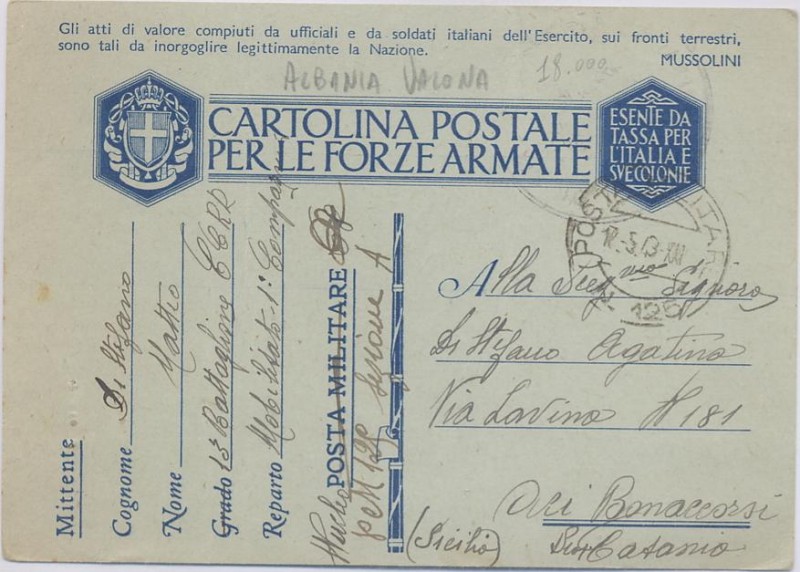 Gli atti di valore compiuti da ufficiali e da soldati italiani dell'Esercito, sui fronti terrestri,
sono tali da inorgoglire legittimamente la Nazione.
MUSSOLINI
ALBANIA VALONA
18.000
CARTOLINA POSTALE
PER LE FORZE ARMATE
ESENTE DA
TASSA PER
L'ITALIA E
SVE COLONIE
POSTA MILITARE
125
Mittente
Cognome Di Stefano
Nome Matteo
Grado 13 Battaglione CCRR
Reparto Mobilitato 1ª Compagnia
POSTA MILITARE
Nucleo A
PM
Alla Signora
Di Stefano Agatina
Via Lavina N 181
Aci Bonaccorsi
(Sicilia) Catania